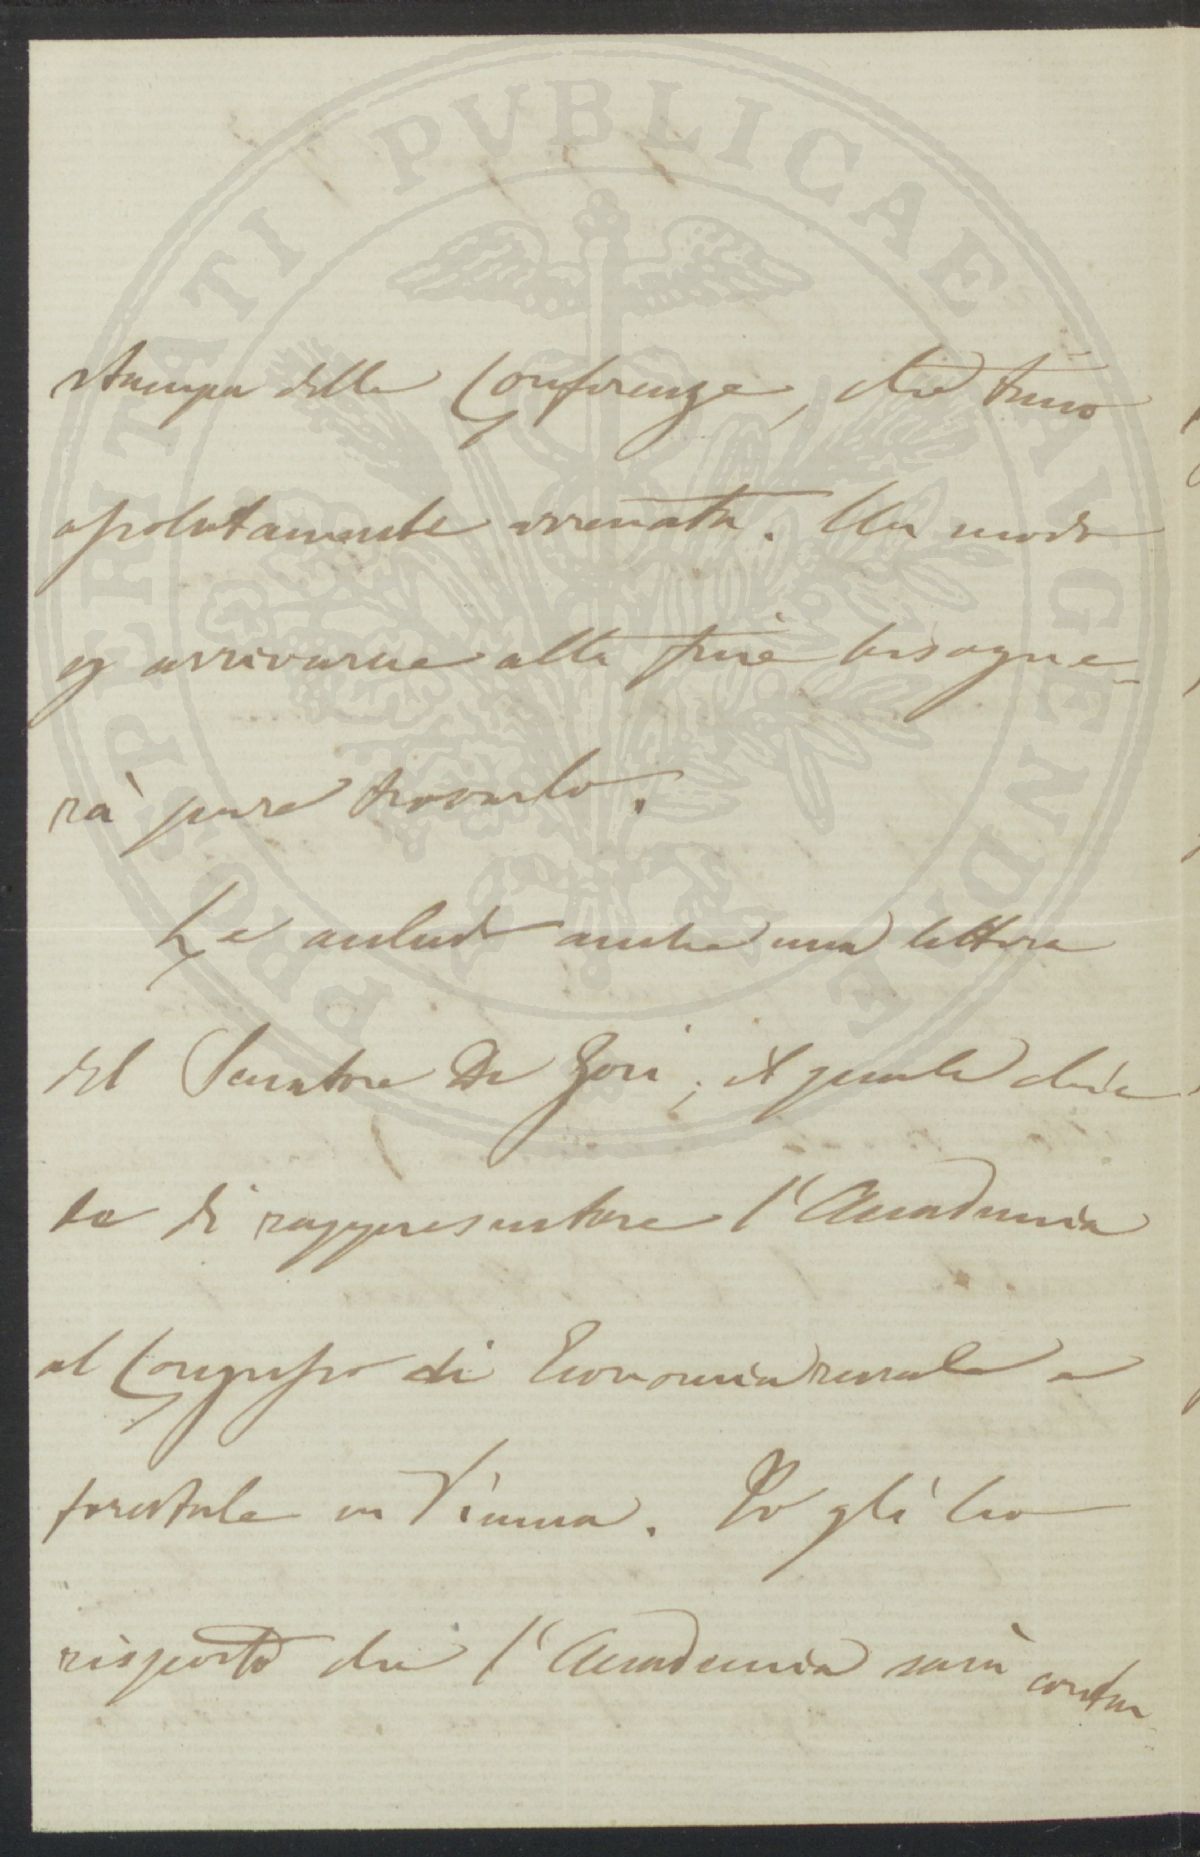 PROSPERITATI PVBLICAE AVGENDAE
stampa delle Conferenze, che temo
assolutamente arrenata. Un modo
di arrivarne alla fine bisogne-
rà pure trovarlo.
Le accludo anche una lettera
del Senatore De Gori, il quale chie
de di rappresentare l'Accademia
al Congresso di Economia rurale e
forestale in Vienna. Io gli ho
risposto che l'Accademia sarà conten